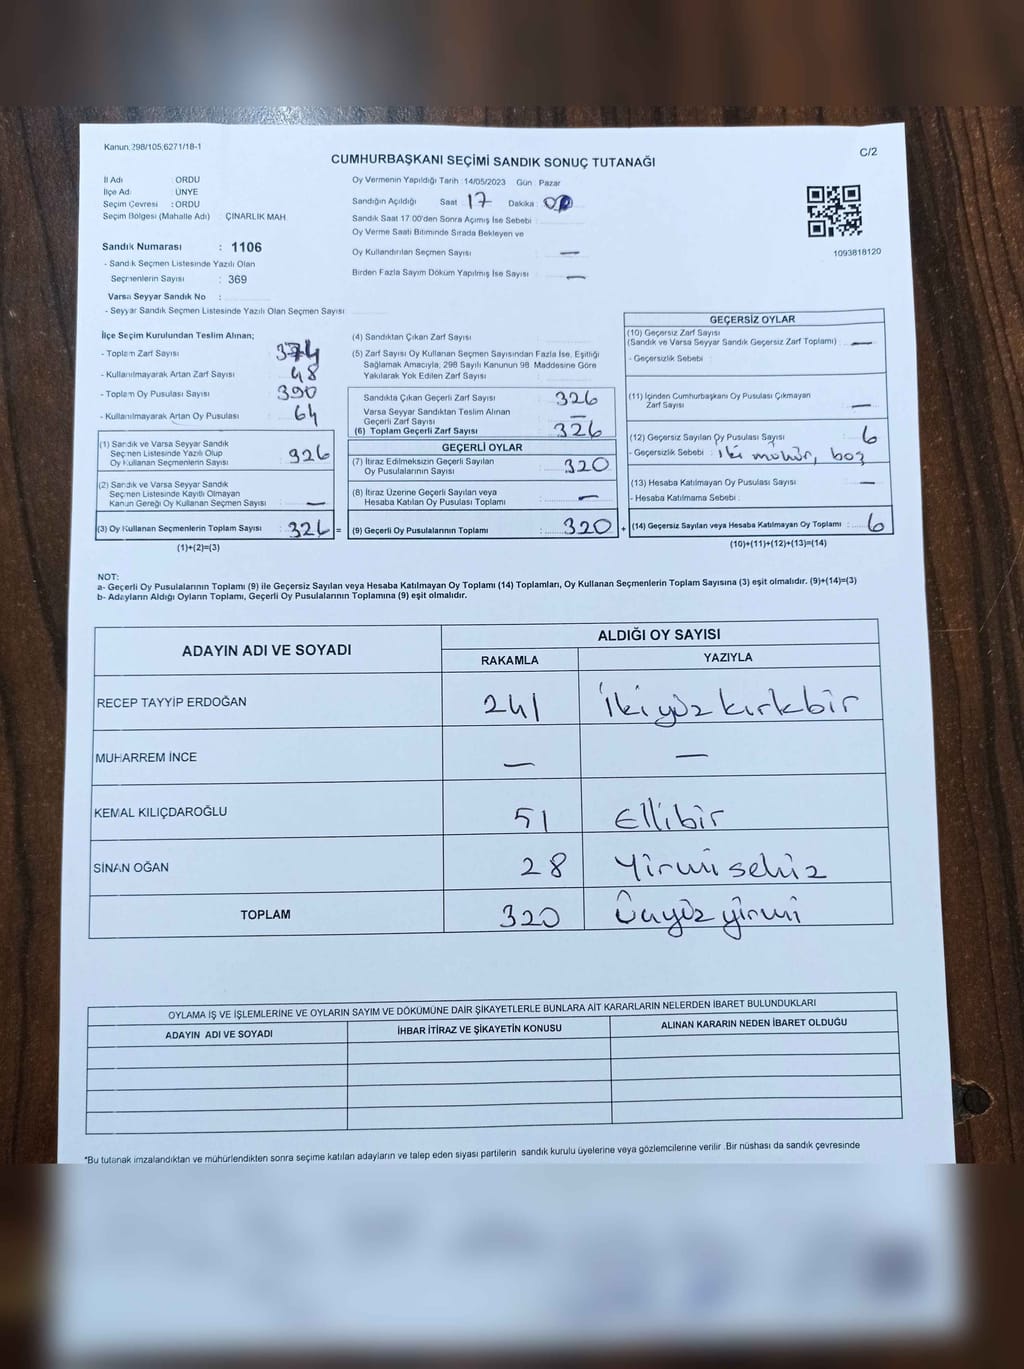 Kanun,298/105,6271/18-1
C/2
CUMHURBAŞKANI SEÇİMİ SANDIK SONUÇ TUTANAĞI
İl Adı : ORDU
İlçe Adı : ÜNYE
Seçim Çevresi : ORDU
Seçim Bölgesi (Mahalle Adı) : ÇINARLIK MAH.
Sandık Numarası : 1106
- Sandık Seçmen Listesinde Yazılı Olan
Seçmenlerin Sayısı : 369
Varsa Seyyar Sandık No :
- Seyyar Sandık Seçmen Listesinde Yazılı Olan Seçmen Sayısı
Oy Vermenin Yapıldığı Tarih : 14/05/2023 Gün : Pazar
Sandığın Açıldığı Saat 17 Dakika : 00
Sandık Saat 17:00'den Sonra Açımış İse Sebebi :
Oy Verme Saati Bitiminde Sırada Bekleyen ve
Oy Kullandırılan Seçmen Sayısı : —
Birden Fazla Sayım Döküm Yapılmış İse Sayısı : —
1093818120
İlçe Seçim Kurulundan Teslim Alınan;
- Toplam Zarf Sayısı : 374
- Kullanılmayarak Artan Zarf Sayısı : 48
- Toplam Oy Pusulası Sayısı : 390
- Kullanılmayarak Artan Oy Pusulası : 64
(1) Sandık ve Varsa Seyyar Sandık
Seçmen Listesinde Yazılı Olup
Oy Kullanan Seçmenlerin Sayısı : 326
(2) Sandık ve Varsa Seyyar Sandık
Seçmen Listesinde Kayıtlı Olmayan
Kanun Gereği Oy Kullanan Seçmen Sayısı : —
(3) Oy Kullanan Seçmenlerin Toplam Sayısı : 326 =
(1)+(2)=(3)
(4) Sandıktan Çıkan Zarf Sayısı :
(5) Zarf Sayısı Oy Kullanan Seçmen Sayısından Fazla İse, Eşitliği
Sağlamak Amacıyla, 298 Sayılı Kanunun 98. Maddesine Göre
Yakılarak Yok Edilen Zarf Sayısı :
Sandıkta Çıkan Geçerli Zarf Sayısı : 326
Varsa Seyyar Sandıktan Teslim Alınan
Geçerli Zarf Sayısı : —
(6) Toplam Geçerli Zarf Sayısı : 326
GEÇERLİ OYLAR
(7) İtiraz Edilmeksizin Geçerli Sayılan
Oy Pusulalarının Sayısı : 320
(8) İtiraz Üzerine Geçerli Sayılan veya
Hesaba Katılan Oy Pusulası Toplamı : —
(9) Geçerli Oy Pusulalarının Toplamı : 320 +
GEÇERSİZ OYLAR
(10) Geçersiz Zarf Sayısı
(Sandık ve Varsa Seyyar Sandık Geçersiz Zarf Toplamı) : —
- Geçersizlik Sebebi :
(11) İçinden Cumhurbaşkanı Oy Pusulası Çıkmayan
Zarf Sayısı : —
(12) Geçersiz Sayılan Oy Pusulası Sayısı : 6
- Geçersizlik Sebebi : iki mühür, boş
(13) Hesaba Katılmayan Oy Pusulası Sayısı : —
- Hesaba Katılmama Sebebi :
(14) Geçersiz Sayılan veya Hesaba Katılmayan Oy Toplamı : 6
(10)+(11)+(12)+(13)=(14)
NOT:
a- Geçerli Oy Pusulalarının Toplamı (9) ile Geçersiz Sayılan veya Hesaba Katılmayan Oy Toplamı (14) Toplamları, Oy Kullanan Seçmenlerin Toplam Sayısına (3) eşit olmalıdır. (9)+(14)=(3)
b- Adayların Aldığı Oyların Toplamı, Geçerli Oy Pusulalarının Toplamına (9) eşit olmalıdır.
ADAYIN ADI VE SOYADI
ALDIĞI OY SAYISI
RAKAMLA YAZIYLA
RECEP TAYYİP ERDOĞAN 241 ikiyüzkırkbir
MUHARREM İNCE — —
KEMAL KILIÇDAROĞLU 51 Ellibir
SİNAN OĞAN 28 Yirmi sekiz
TOPLAM 320 Üçyüz yirmi
OYLAMA İŞ VE İŞLEMLERİNE VE OYLARIN SAYIM VE DÖKÜMÜNE DAİR ŞİKAYETLERLE BUNLARA AİT KARARLARIN NELERDEN İBARET BULUNDUKLARI
ADAYIN ADI VE SOYADI İHBAR İTİRAZ VE ŞİKAYETİN KONUSU ALINAN KARARIN NEDEN İBARET OLDUĞU
*Bu tutanak imzalandıktan ve mühürlendikten sonra seçime katılan adayların ve talep eden siyasi partilerin sandık kurulu üyelerine veya gözlemcilerine verilir .Bir nüshası da sandık çevresinde